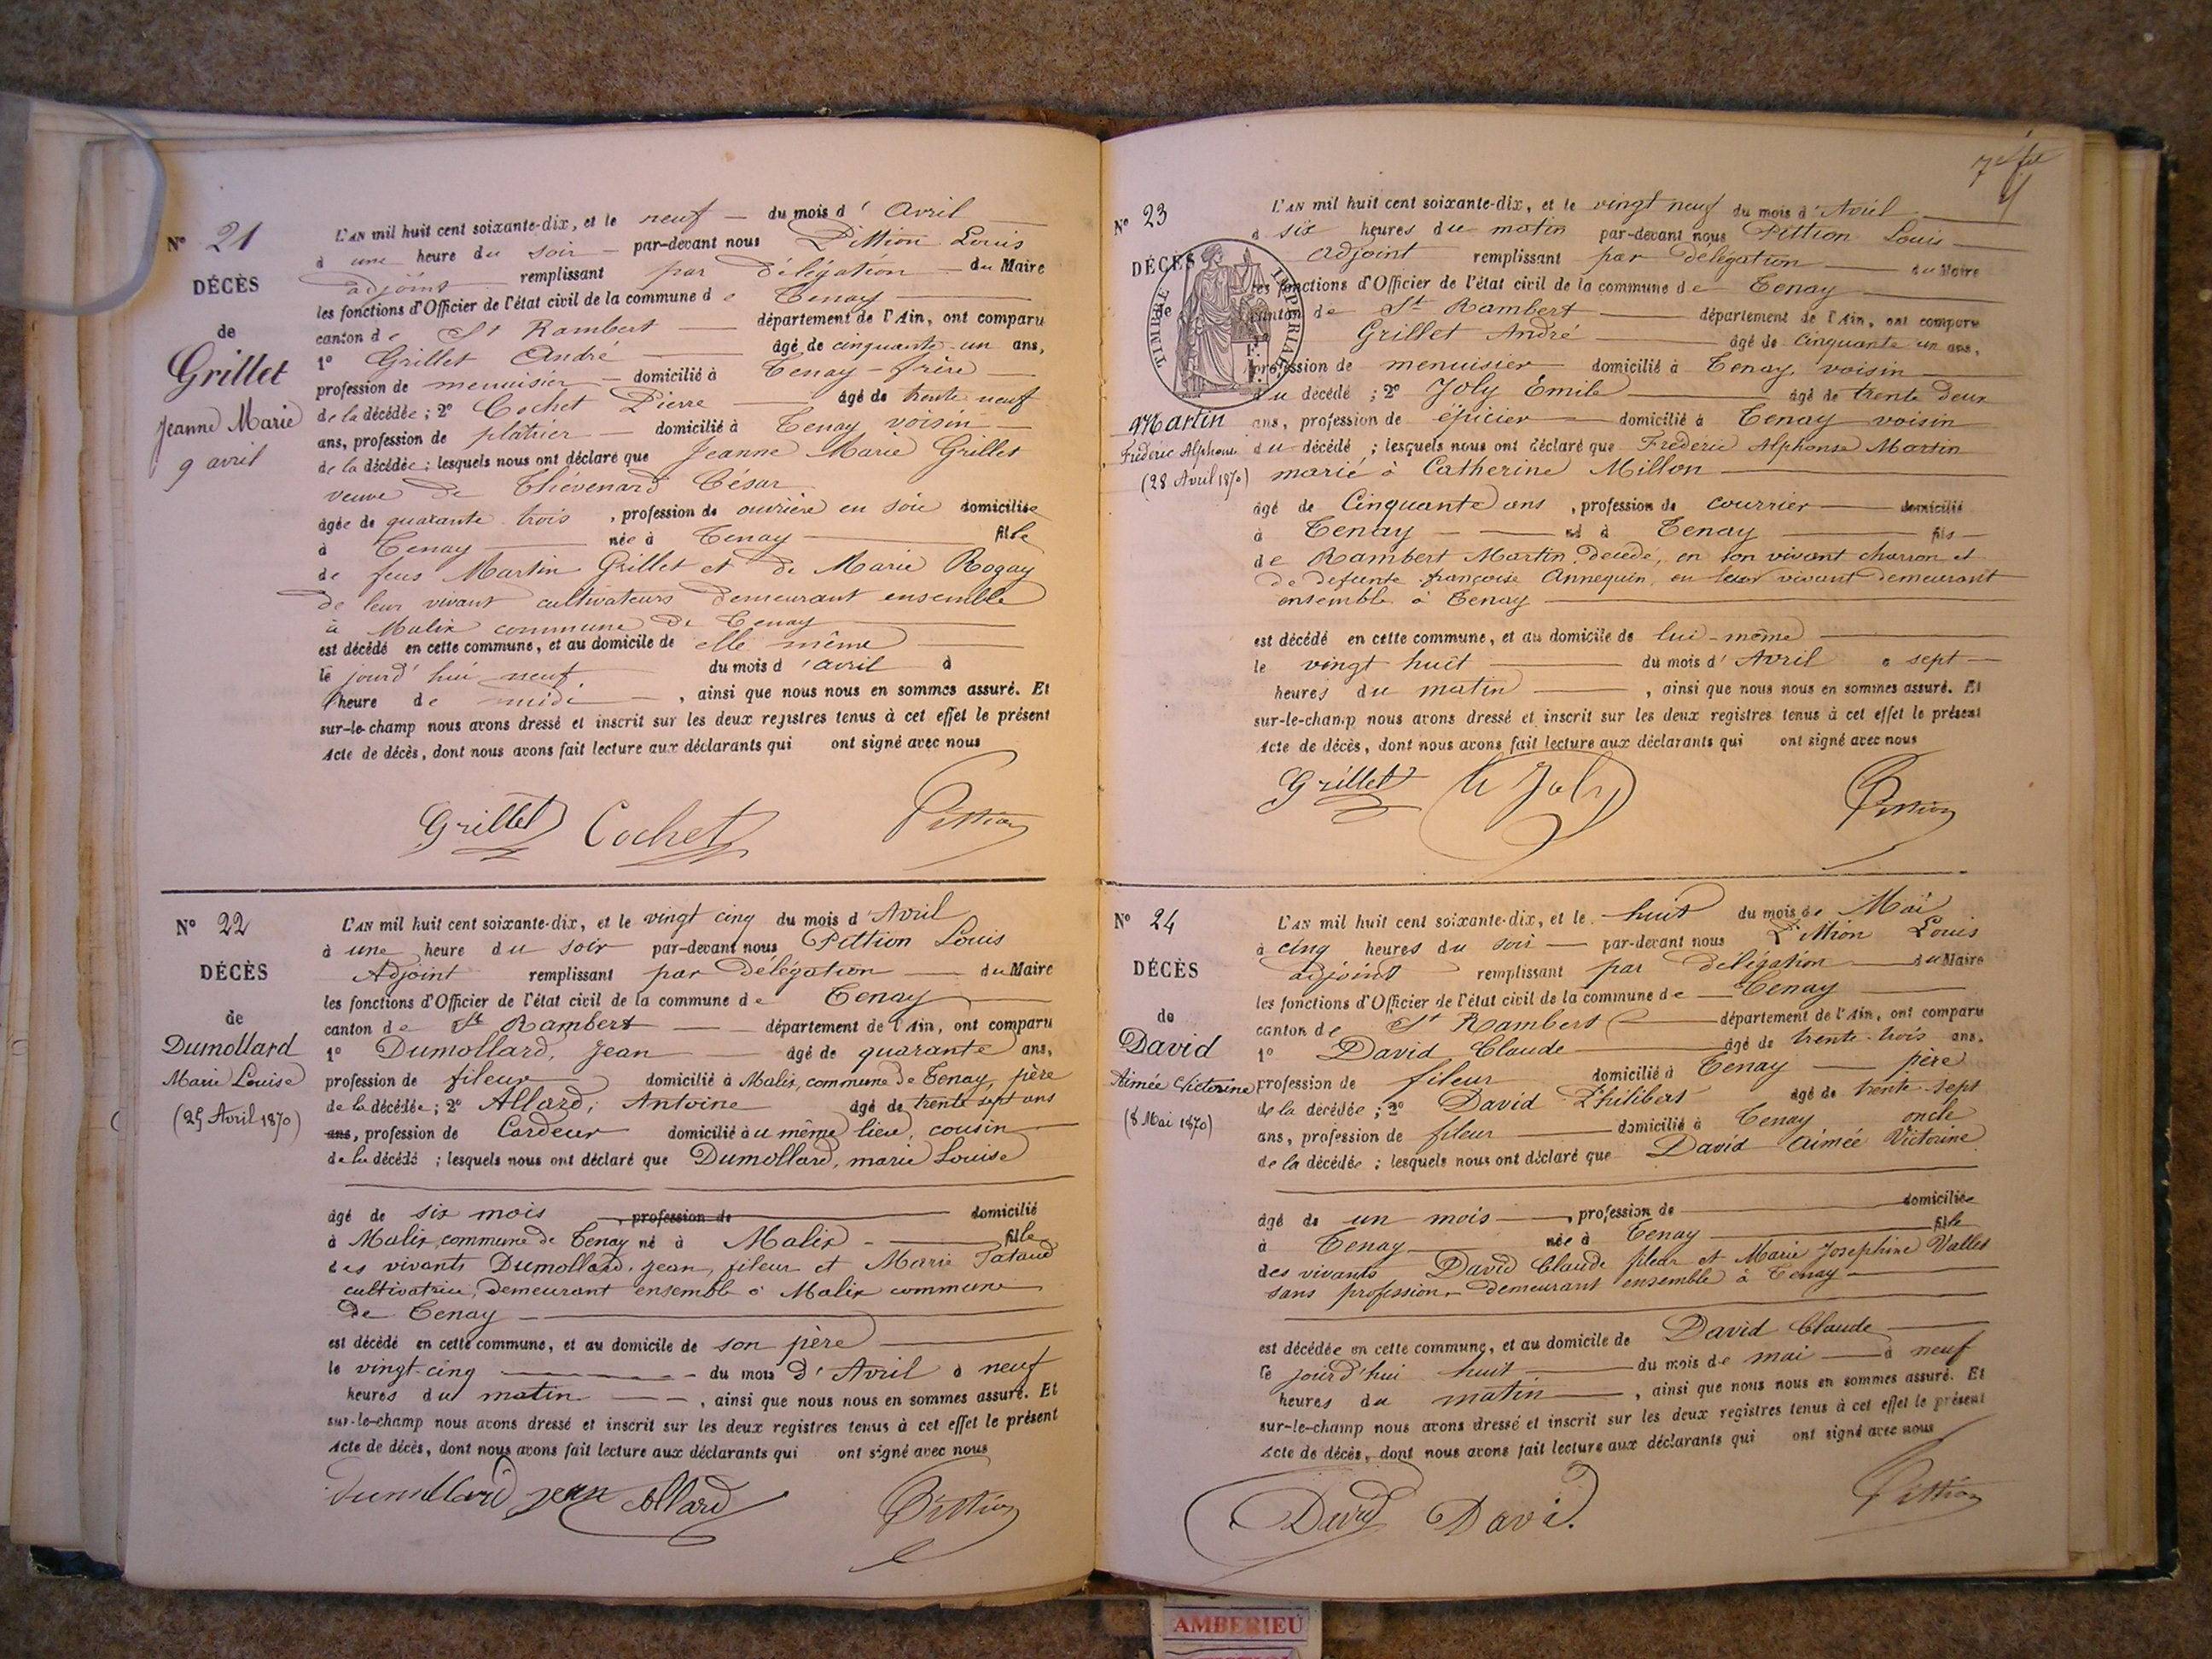 N° 21
DÉCÈS
de
Grillet
Jeanne Marie
9 avril
L'AN mil huit cent soixante-dix, et le neuf du mois d'Avril
à une heure du soir par-devant nous Pittion Louis
adjoint remplissant par délégation du Maire
les fonctions d'Officier de l'état civil de la commune de Tenay
canton de St Rambert département de l'Ain, ont comparu
1° Grillet André âgé de cinquante-un ans,
profession de menuisier domicilié à Tenay - frère
de la décédée ; 2° Cochet Pierre âgé de trente neuf
ans, profession de plâtrier domicilié à Tenay voisin
de la décédée ; lesquels nous ont déclaré que Jeanne Marie Grillet
veuve de Thévenard César
âgée de quarante trois , profession de ouvrière en soie domiciliée
à Tenay née à Tenay fille
de feus Martin Grillet et de Marie Rogay
de leur vivant cultivateurs demeurant ensemble
à Malix commune de Tenay
est décédé en cette commune, et au domicile de elle même
le jourd'hui neuf du mois d'avril à
l'heure de midi , ainsi que nous nous en sommes assuré. Et
sur-le-champ nous avons dressé et inscrit sur les deux registres tenus à cet effet le présent
Acte de décès, dont nous avons fait lecture aux déclarants qui ont signé avec nous
Grillet Cochet Pittion
N° 22
DÉCÈS
de
Dumollard
Marie Louise
(25 Avril 1870)
L'AN mil huit cent soixante-dix, et le vingt cinq du mois d'Avril
à une heure du soir par-devant nous Pittion Louis
Adjoint remplissant par délégation du Maire
les fonctions d'Officier de l'état civil de la commune de Tenay
canton de St Rambert département de l'Ain, ont comparu
1° Dumollard, Jean âgé de quarante ans,
profession de fileur domicilié à Malix, commune de Tenay, père
de la décédée ; 2° Allard, Antoine âgé de trente sept ans
ans, profession de Cardeur domicilié au même lieu, cousin
de la décédé ; lesquels nous ont déclaré que Dumollard, marie Louise
âgé de six mois , profession de domicilié
à Malix, commune de Tenay né à Malix fille
des vivants Dumollard, Jean, fileur et Marie Tataud
cultivatrice, demeurant ensemble à Malix commune
de Tenay
est décédé en cette commune, et au domicile de son père
le vingt-cinq du mois d'Avril à neuf
heures du matin , ainsi que nous nous en sommes assuré. Et
sur-le-champ nous avons dressé et inscrit sur les deux registres tenus à cet effet le présent
Acte de décès, dont nous avons fait lecture aux déclarants qui ont signé avec nous
Dumollard jean Allard Pittion
N° 23
DÉCÈS
de
TIMBRE IMPERIAL
Martin
Fréderic Alphonse
(28 Avril 1870)
L'AN mil huit cent soixante-dix, et le vingt neuf du mois d'Avril
à six heures du matin par-devant nous Pittion Louis
Adjoint remplissant par délégation du Maire
les fonctions d'Officier de l'état civil de la commune de Tenay
canton de St Rambert département de l'Ain, ont comparu
Grillet André âgé de Cinquante un ans,
profession de menuisier domicilié à Tenay, voisin
du décédé ; 2° Joly Emile âgé de trente deux
ans, profession de épicier domicilié à Tenay voisin
du décédé ; lesquels nous ont déclaré que Fréderic Alphonse Martin
marié à Catherine Millon
âgé de Cinquante ans , profession de courrier domicilié
à Tenay né à Tenay fils
de Rambert Martin, décédé, en son vivant charron et
de défunte françoise Annequin, en leur vivant demeurant
ensemble à Tenay
est décédé en cette commune, et au domicile de lui-même
le vingt huit du mois d'Avril à sept
heures du matin , ainsi que nous nous en sommes assuré. Et
sur-le-champ nous avons dressé et inscrit sur les deux registres tenus à cet effet le présent
Acte de décès, dont nous avons fait lecture aux déclarants qui ont signé avec nous
Grillet Joly Pittion
N° 24
DÉCÈS
de
David
Aimée Victorine
(8 Mai 1870)
L'AN mil huit cent soixante-dix, et le huit du mois de Mai
à cinq heures du soir par-devant nous Pittion Louis
adjoint remplissant par délégation du Maire
les fonctions d'Officier de l'état civil de la commune de Tenay
canton de St Rambert département de l'Ain, ont comparu
1° David Claude âgé de trente-trois ans,
profession de fileur domicilié à Tenay père
de la décédée ; 2° David Philibert âgé de trente-sept
ans, profession de fileur domicilié à Tenay oncle
de la décédée ; lesquels nous ont déclaré que David Aimée Victorine
âgé de un mois , profession de domiciliée
à Tenay née à Tenay fille
des vivants David Claude fileur et Marie Josephine Vallet
sans profession demeurant ensemble à Tenay
est décédée en cette commune, et au domicile de David Claude
le jourd'hui huit du mois de mai à neuf
heures du matin , ainsi que nous nous en sommes assuré. Et
sur-le-champ nous avons dressé et inscrit sur les deux registres tenus à cet effet le présent
Acte de décès, dont nous avons fait lecture aux déclarants qui ont signé avec nous
David David Pittion
AMBERIEU